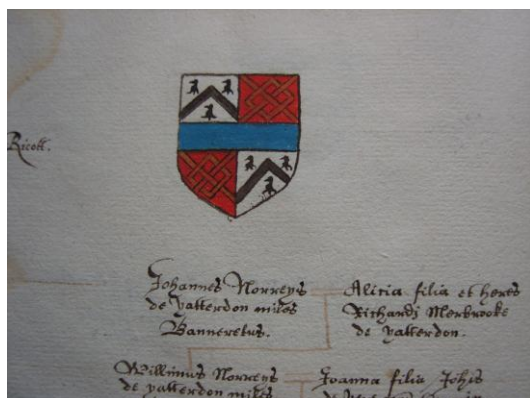 Ricott.
Johannes Norreys
de yatterdon miles
Bannerettus.
Alicia filia et heres
Richardj Merbrooke
de yatterdon.
Willimus Norreys
de yatterdon miles
Joanna filia Johis